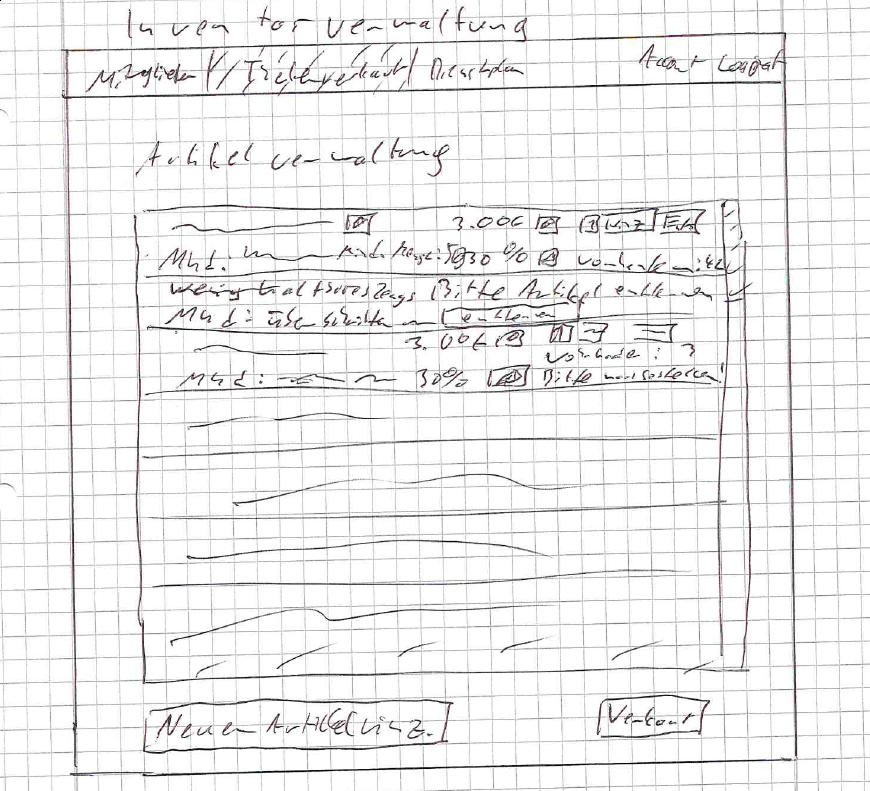 Inventorverwaltung
Mitglieder / Thekenverkauf / Dienstplan Account Logout
Artikelverwaltung
3.00€ hinz. Entf.
Mhd: Mind. Menge: 5 30% Vorhanden: 42
Bitte Artikel entfernen
Mhd: überschritten entfernen
3.00€
Vorhanden: 3
Mhd: 30% Bitte nachbestellen!
Neuen Artikel hinz.
Verkauf